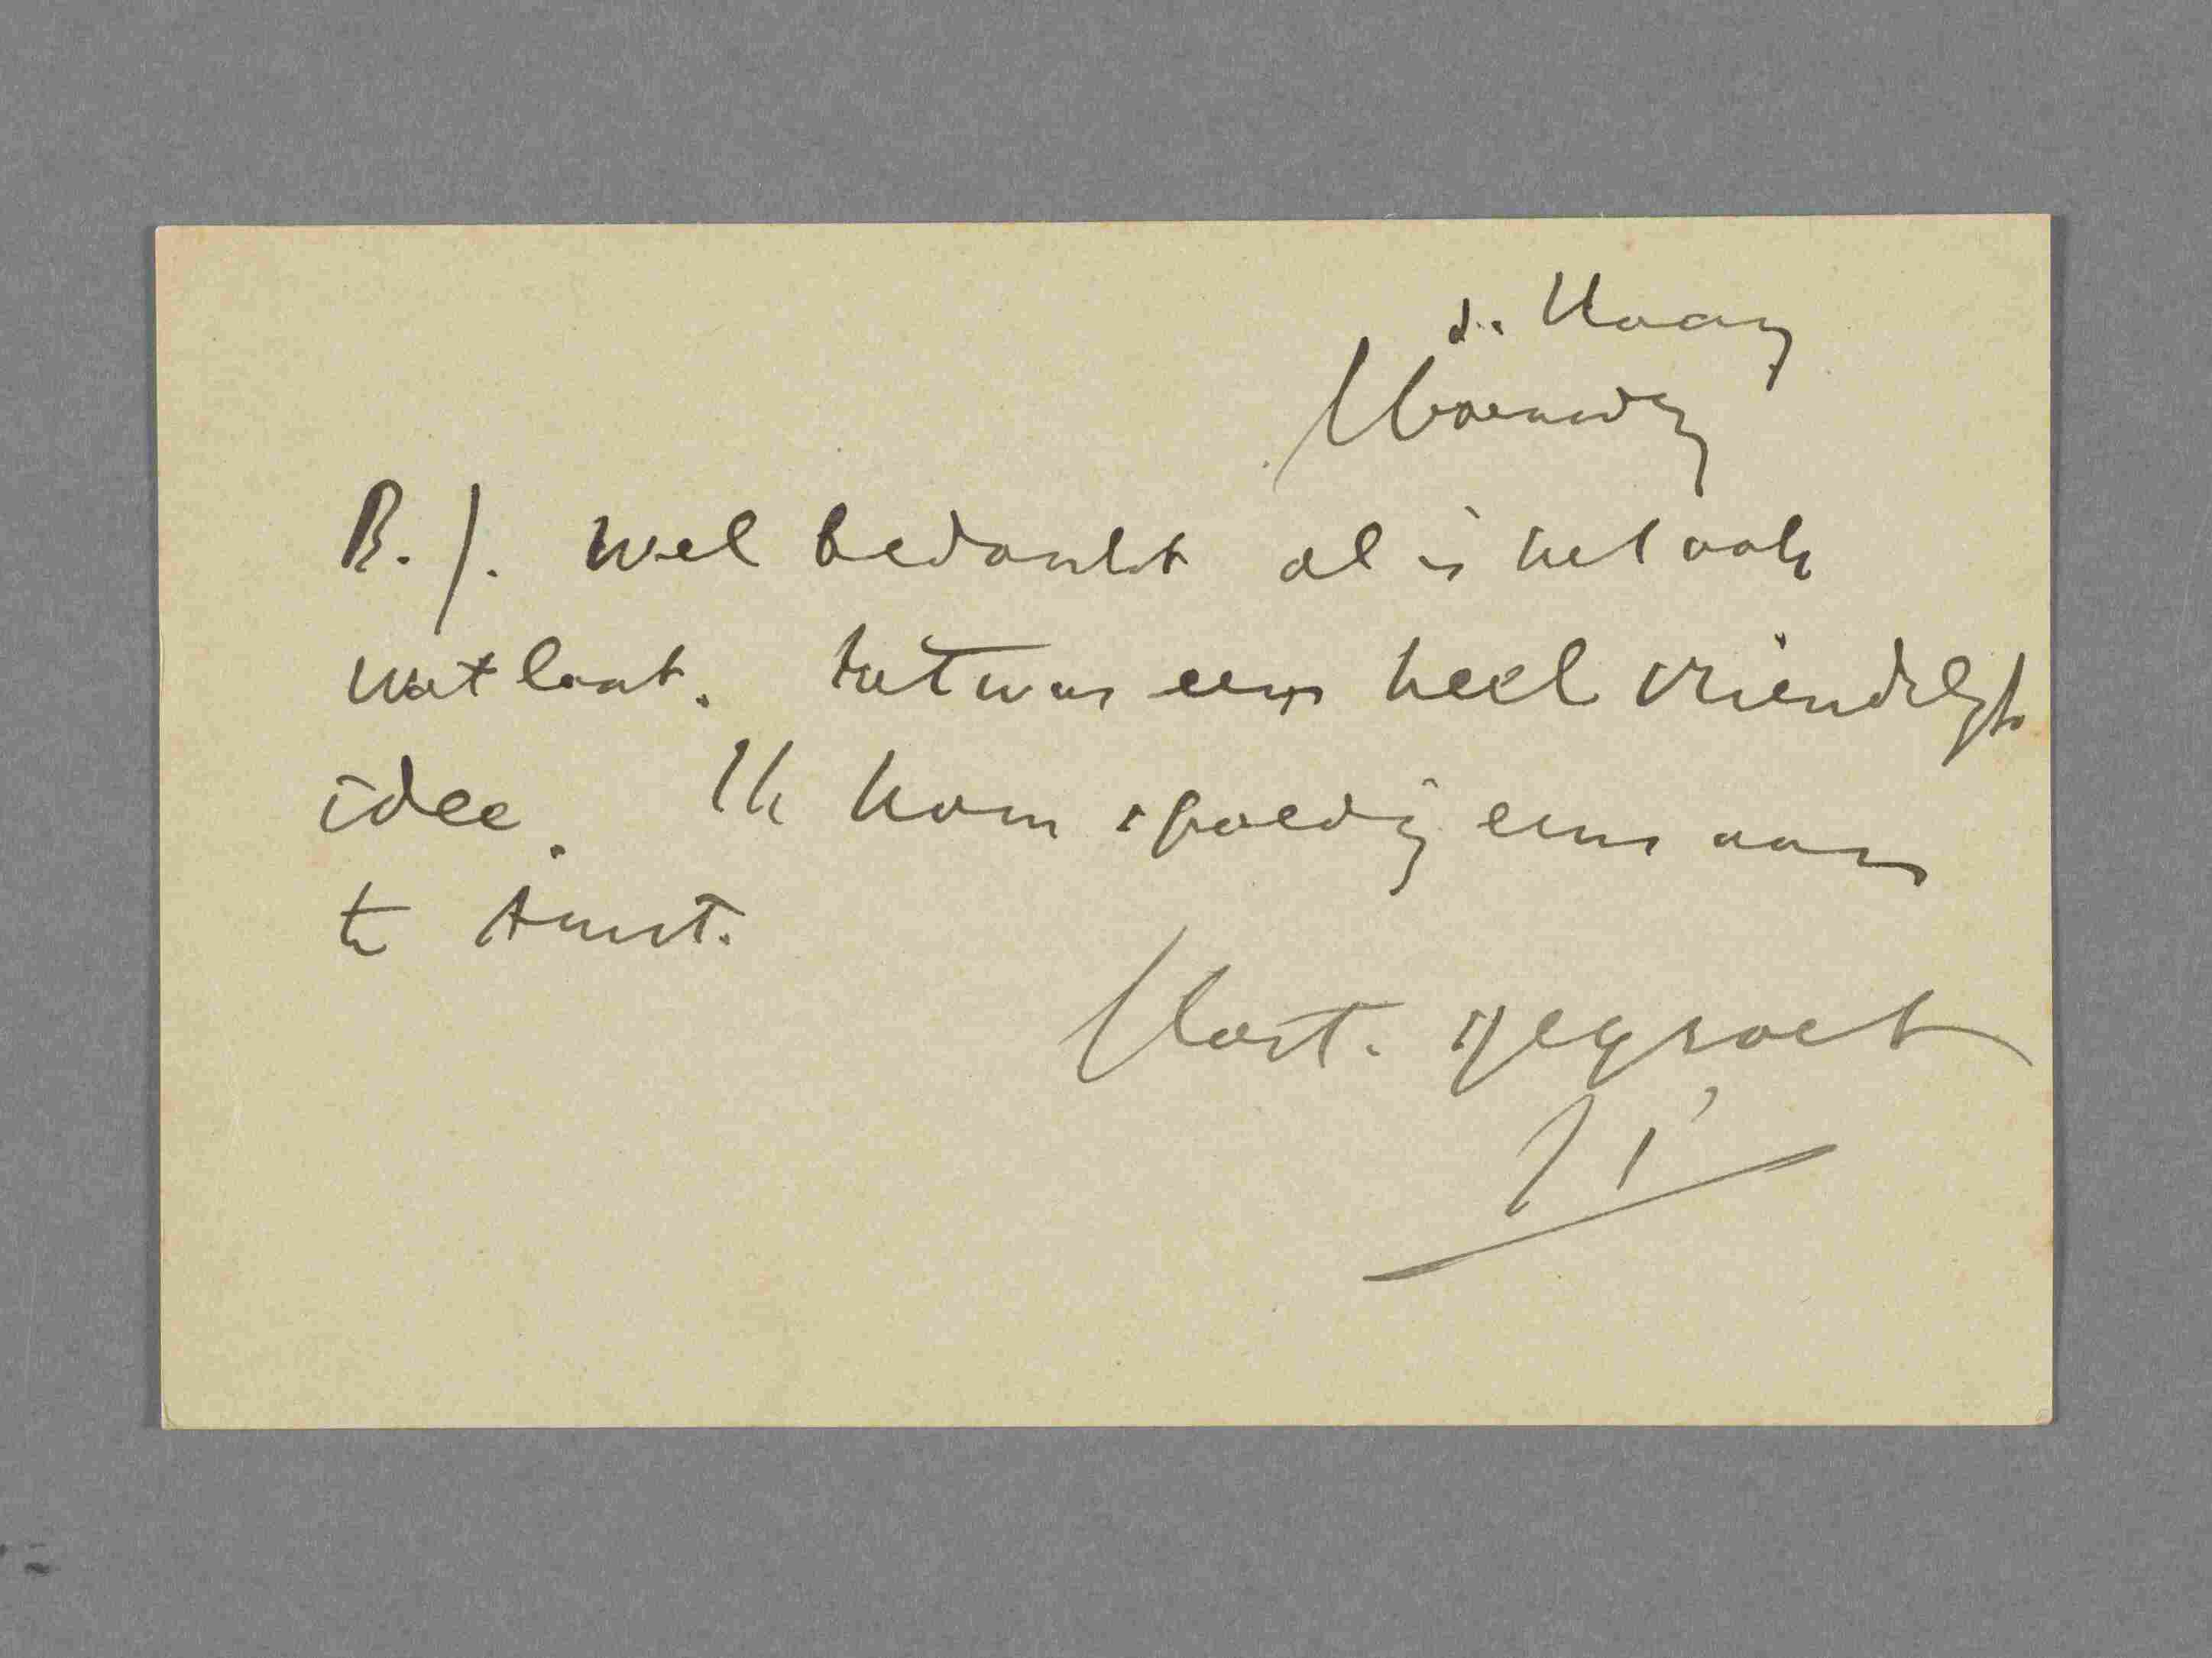 d. Haag
Woensdag
B. J. Wel bedankt al is het ook
wat laat. het was een heel vriendelyk
idee. Ik kom spoedig eens aan
te Amst.
Hart. gegroet